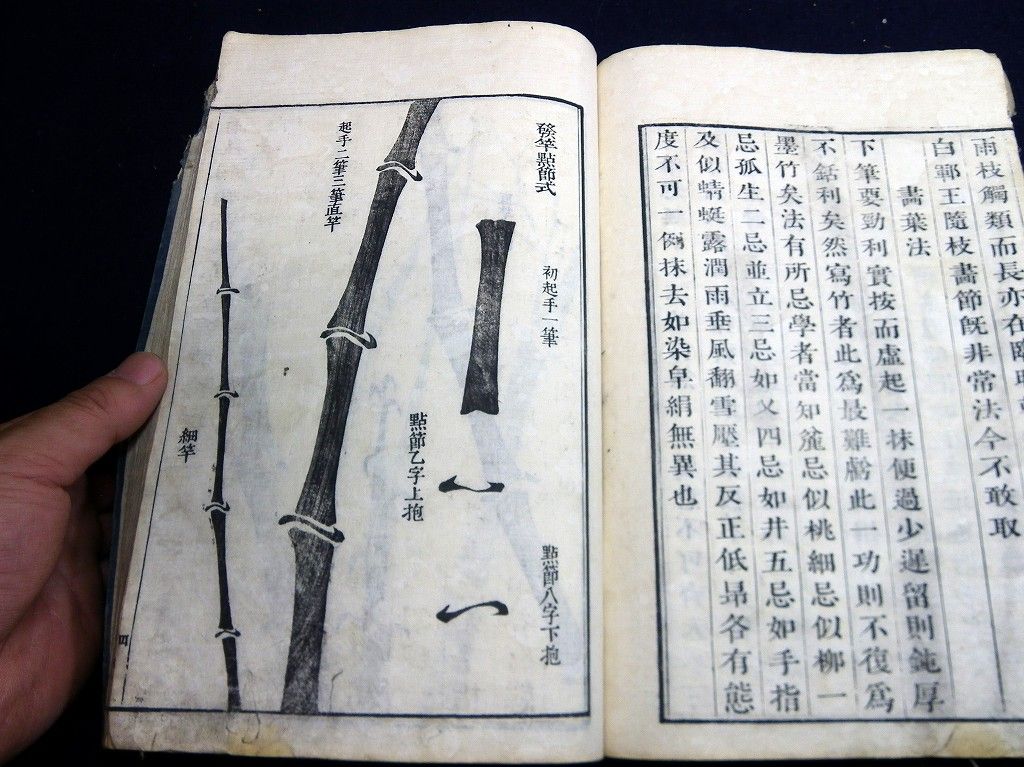 雨枝觸類而長亦在臨時
白鄲王隨枝畫節旣非常法今不敢取
畫葉法
下筆要勁利實按而虛起一抹便過少遲留則鈍厚
不銛利矣然寫竹者此爲最難虧此一功則不復爲
墨竹矣法有所忌學者當知麄忌似桃細忌似柳一
忌孤生二忌並立三忌如乂四忌如井五忌如手指
及似蜻蜓露潤雨垂風翻雪壓其反正低昂各有態
度不可一例抹去如染皁絹無異也
發竿點節式
初起手一筆
點節八字下抱
點節乙字上抱
起手二筆三筆直竿
細竿
四